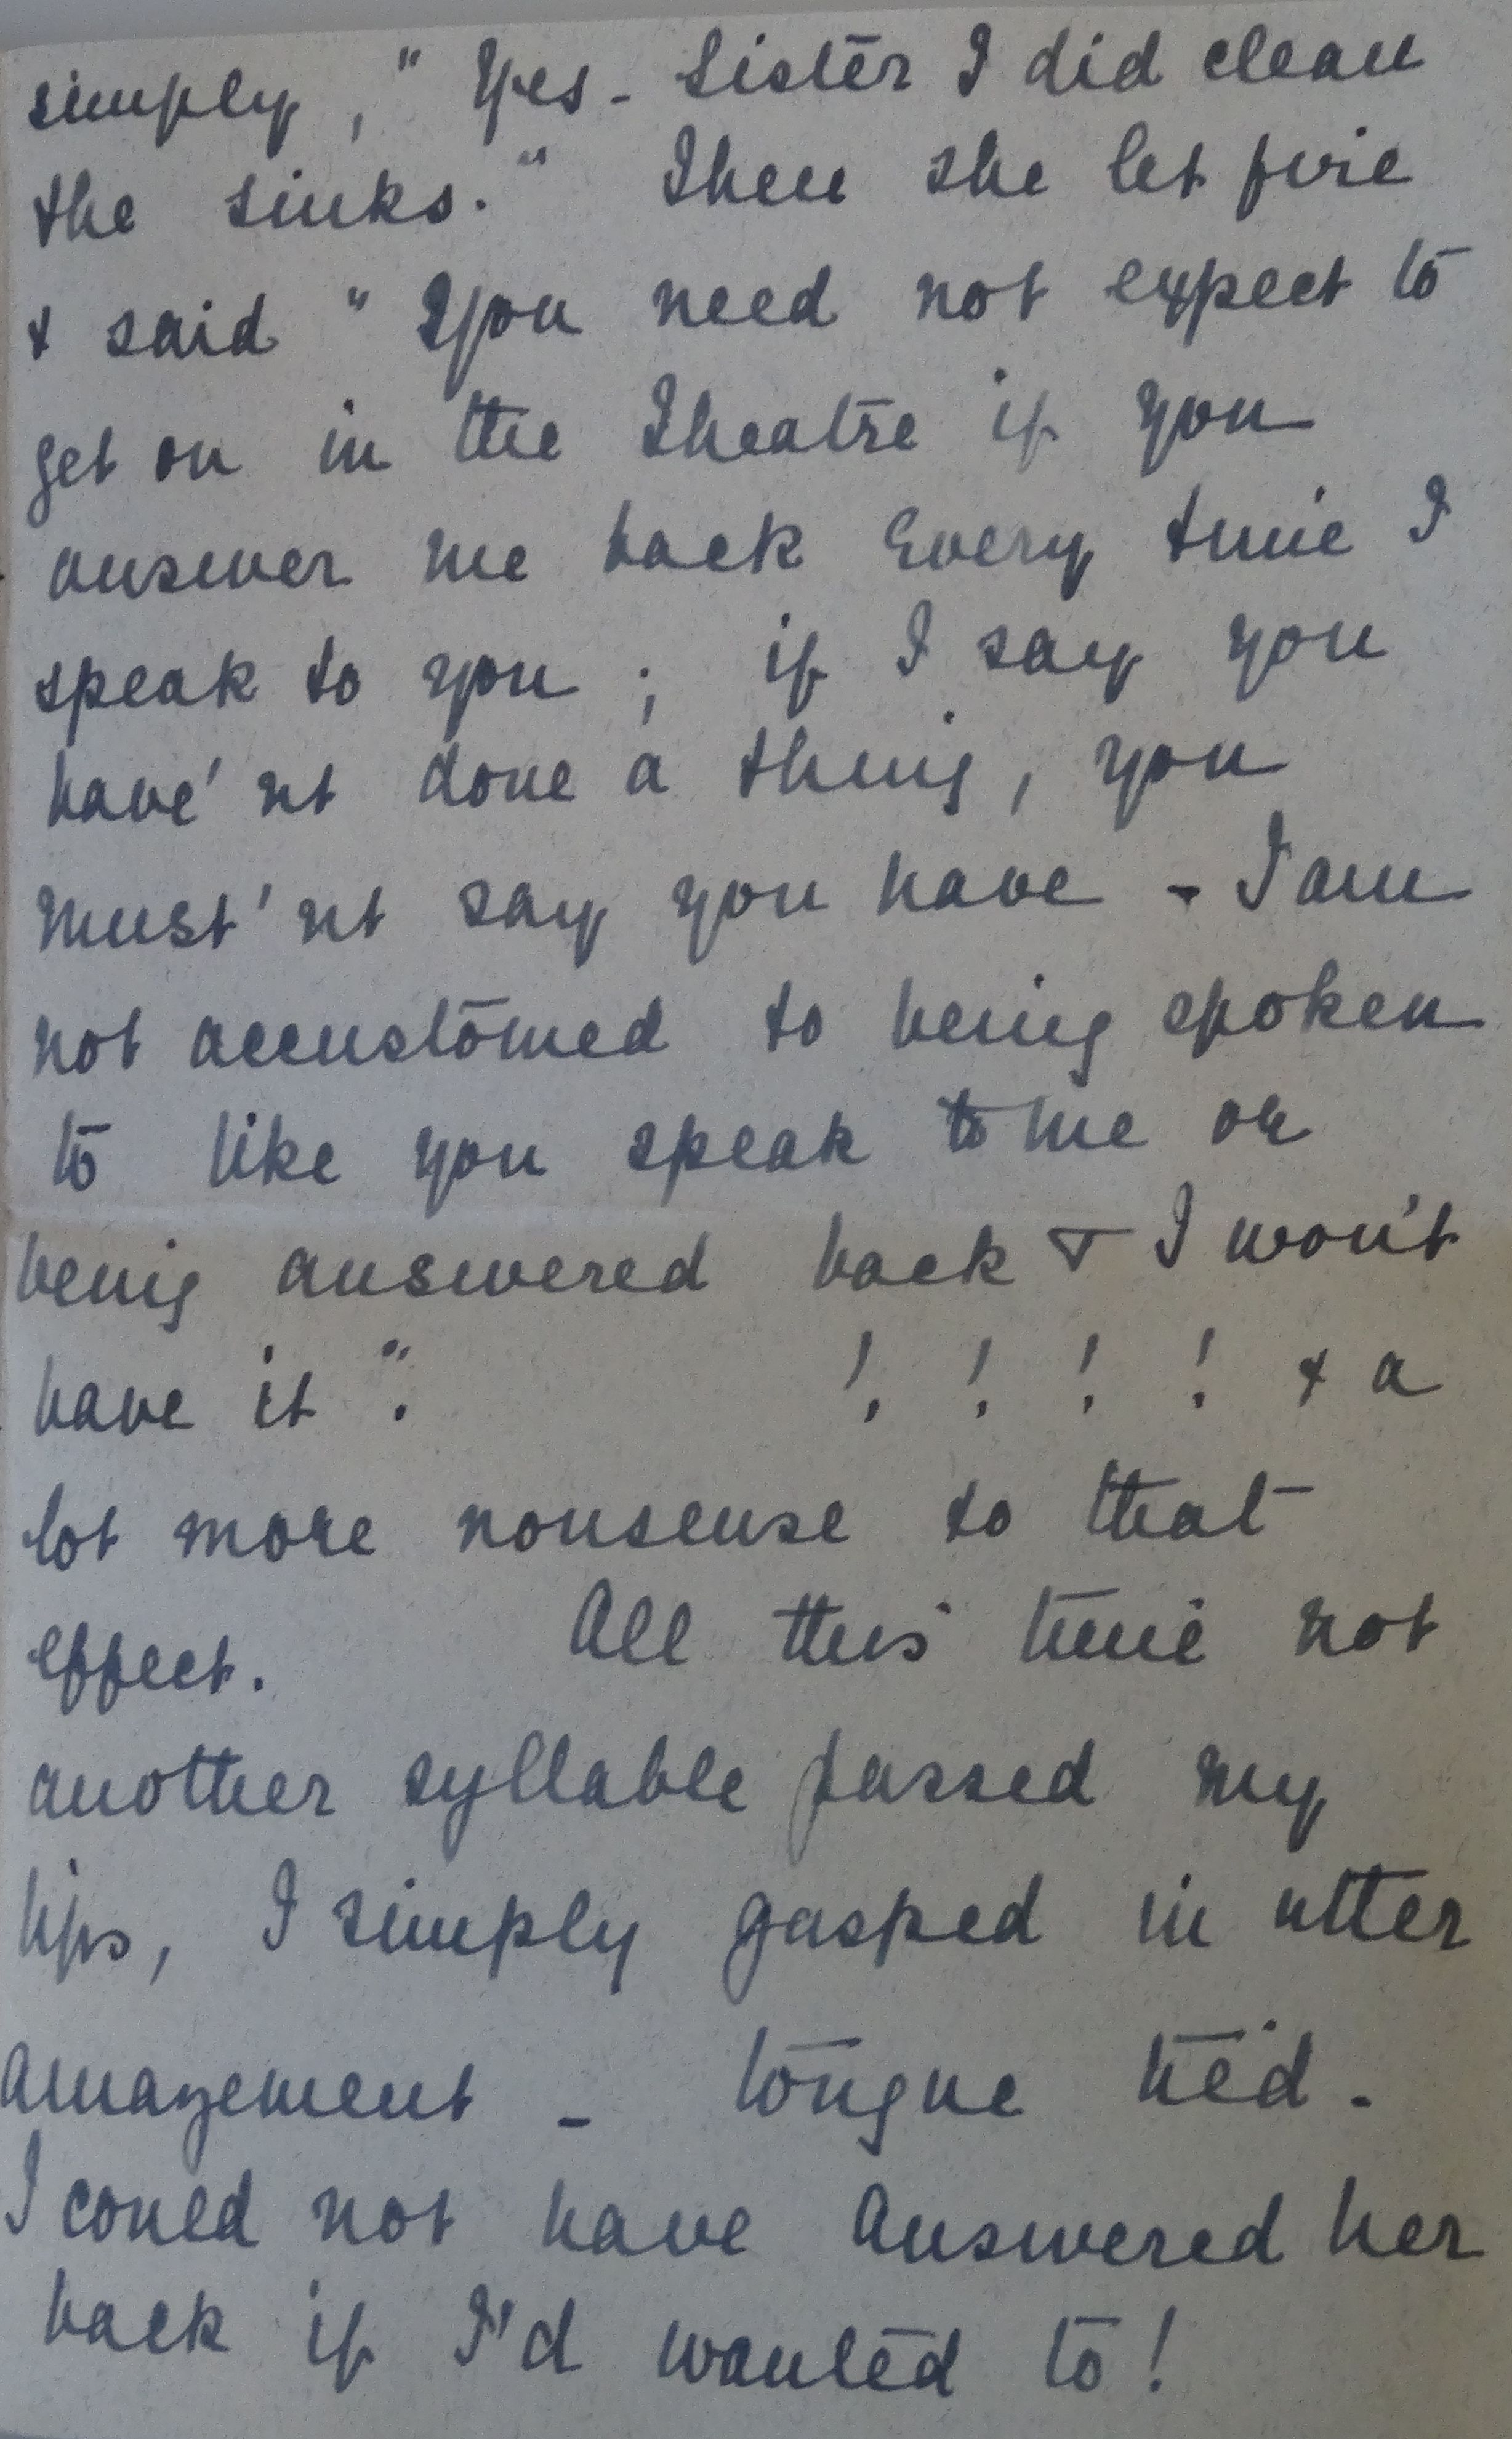 simply, " Yes - Sister I did clean
the sinks. " Then she let fire
& said " You need not expect to
get on in the Theatre if you
answer me back Every time I
speak to you ; if I say you
have'nt done a thing, you
must'nt say you have - I am
not accustomed to being spoken
to like you speak to me or
being answered back & I won't
have it ". ! ! ! ! & a
lot more nonsense to that
effect. All this time not
another syllable passed my
lips, I simply gasped in utter
amazement - tongue tied -
I could not have answered her
back if I'd wanted to!